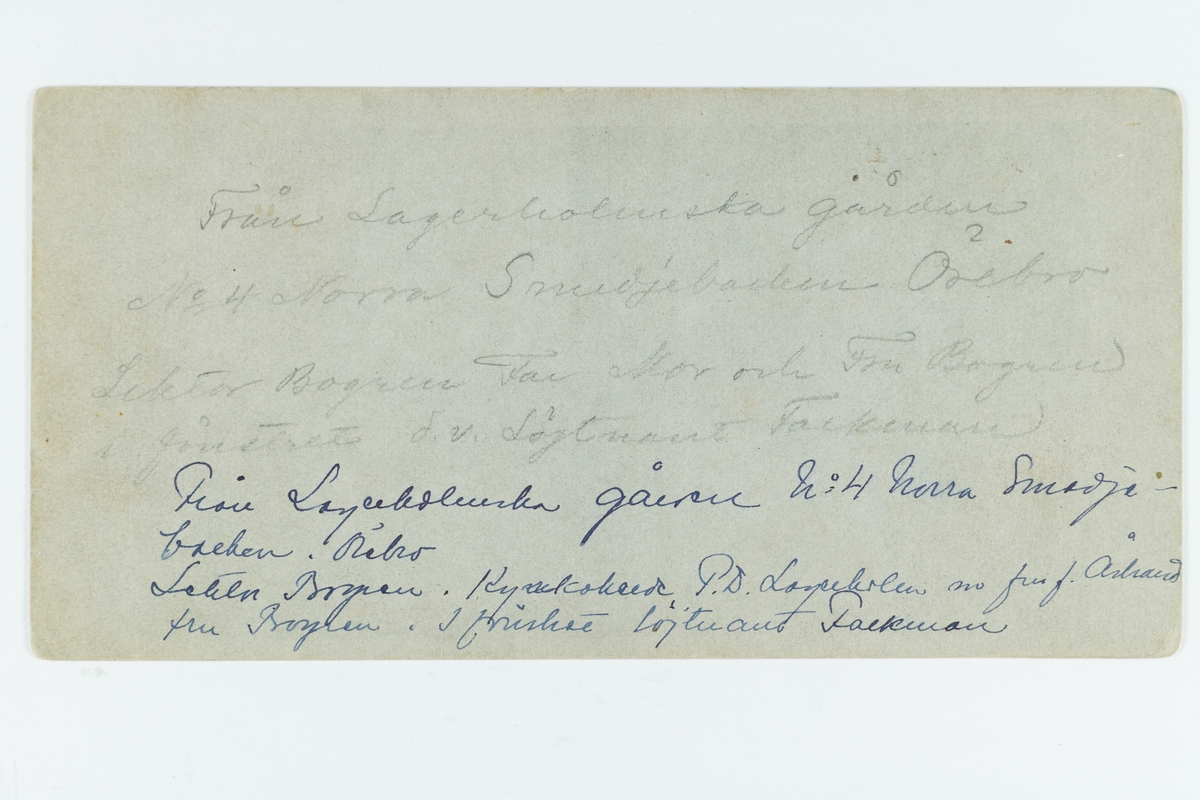 Från Lagerholmska gården
No 4 Norra Smedjebacken Örebro
Lektor Bogren Far Mor och Fru Bogren
i fönstret d.v. Löjtnant Fackman
Från Lagerholmska gården No: 4 Norra Smedje-
backen. Örebro
Lektor Bogren. Kyrkoherde P.D. Lagerholm m fru f. Åstrand
fru Bogren. I fönstret löjtnant Fackman